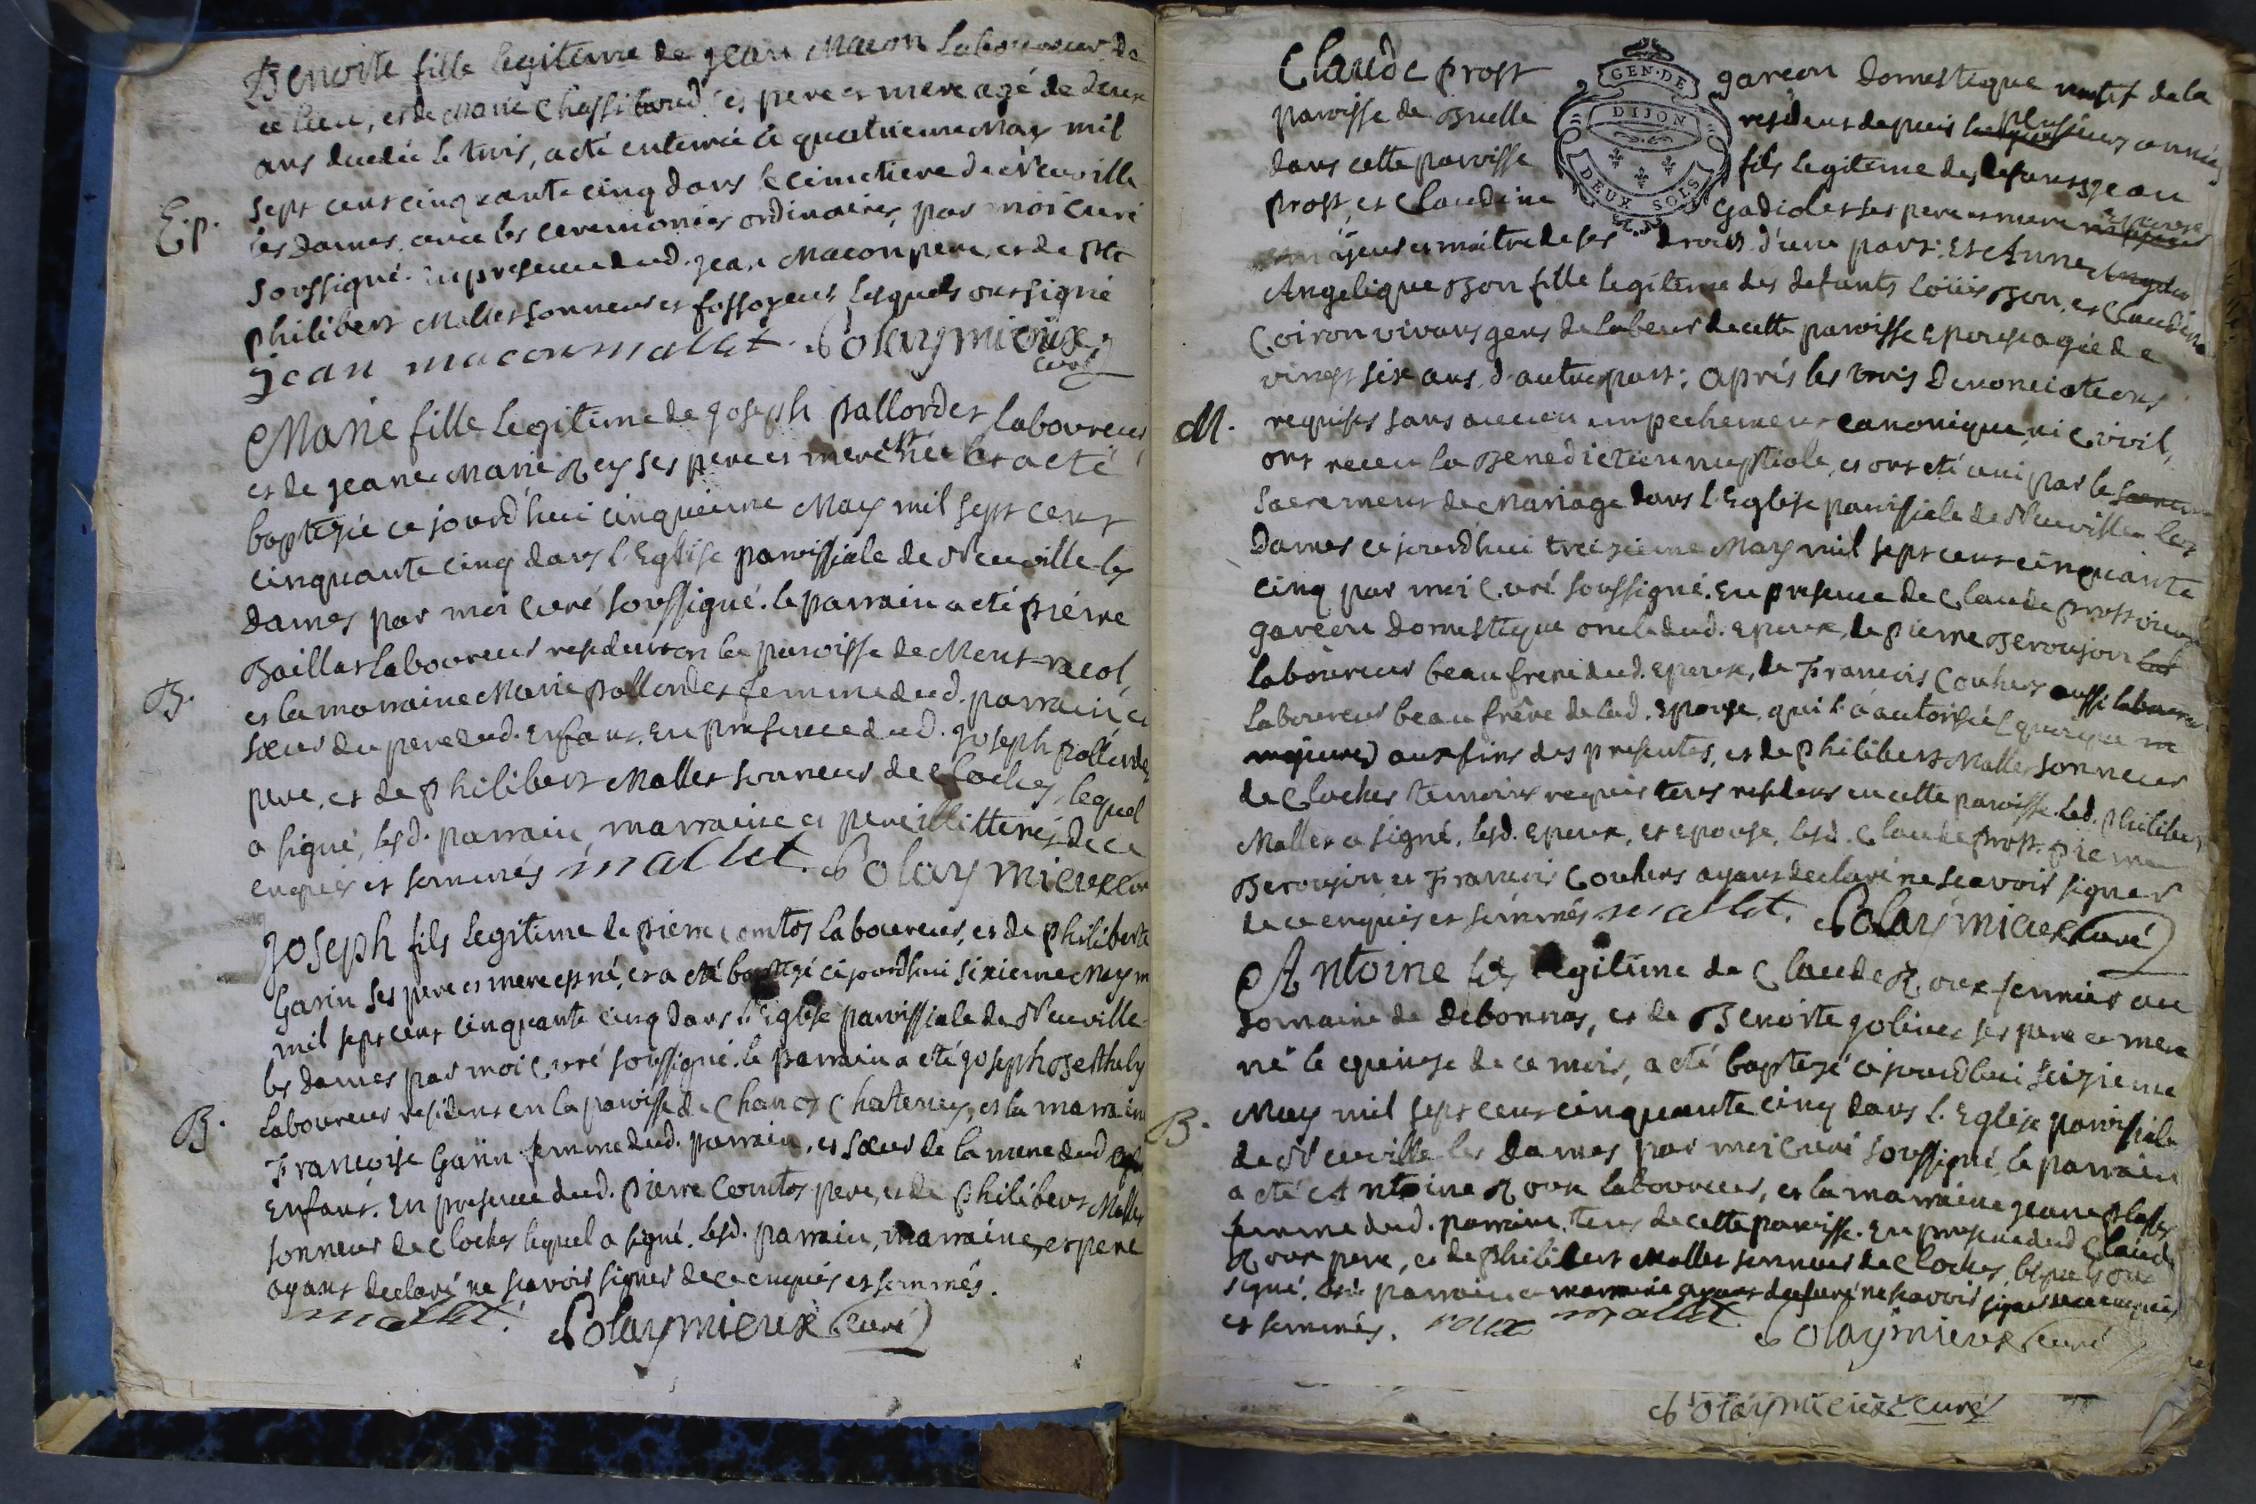 Benoite fille legitime de jean Macon Laboureur de
ce lieu, et de Marie Chassiboud ses pere et mere agé de deux
ans decedée le trois, a été enterrée le quatrieme May mil
sept cent cinquante cinq dans le cimetiere de Neuville
E.p.
les Dames avec les ceremonies ordinaires, par moi curé
soussigné. En presence dud. jean Macon pere, et de
philibert Mallet sonneur et fossoyeur, lesquels ont signé
jean macon mallet. Solaymieux
curé
Marie fille Legitime de joseph Pallordet Laboureur,
et de jeane Marie Rey ses pere et mere née et a eté
baptisée ce jourd'hui cinquieme May mil sept cent
cinquante cinq dans l'Eglise paroissiale de Neuville-les
Dames par moi curé soussigné. le parrain a eté pierre
Baillat Laboureur resident en la paroisse de Mont-racol,
B.
et la marraine Marie Pallordet femme dud. parrain, et
sœur du pere dud. Enfant. En presence dud. joseph Pallordet
pere, et de philibert Mallet sonneur de cloches, lequel
a signé, lesd. parrain, marraine et pere illitterés de ce
enquis et sommés mallet. Solaymieux curé
Joseph fils legitime de pierre comtos laboureur, et de philiberte
Garin ses pere et mere est né, et a eté baptisé ce jourdhui sixieme May m
mil sept cent cinquante cinq dans l'Eglise paroissiale de Neuville
les dames par moi curé soussigné. le parrain a eté joseph Berthely
Laboureur resident en la paroisse de Chanoz Chatenay, et la marraine
B.
Francoise Garin femme dud. parrain, et sœur de la mere dud.
Enfant. En presence dud. pierre Comtos pere, et de philibert Mallet
sonneur de cloches lequel a signé. lesd. parrain, marraine, et pere
ayant declaré ne scavoir signer de ce enquis et sommés.
mallet. Solaymieux curé
Claude prost garcon Domestique natif de la
GEN. DE
DIJON
DEUX SOLS
paroisse de Buelle resident depuis plusieurs années
dans cette paroisse fils legitime des defunts jean
prost, et Claudine Gadiolet ses pere et mere
majeur et maitre de ses droits d'une part: Et Anne
Angelique Bon fille legitime des defunts Loüis Bon, et Claudine
Coiron vivans gens de labeur de cette paroisse Epouse agée de
vingt six ans, d'autre part: aprés les trois Denonciations
M.
requises sans aucun empechement canonique, ni civil,
ont receu la Benediction nuptiale, et ont eté uni par le
sacrement de Mariage dans l'Eglise paroissiale de Neuville les
Dames ce jourdhui treizieme May mil sept cent cinquante
cinq par moi curé soussigné. En presence de Claude prost
garcon Domestique oncle dud. Epoux, de pierre Beroujon
laboureur beau frere dud. Epoux, de Francois Couhert aussi
Laboureur beau frêre de lad. Epouse, qui l'a autorisée (quoique
majeure) aux fins des presentes, et de philibert Mallet sonneur
de cloches temoins requis tous residens en cette paroisse. led. philibert
Mallet a signé. lesd. Epoux, et Epouse, lesd. Claude prost, pierre
Beroujon et Francois Couhert ayant declaré ne scavoir signer
de ce enquis et sommés mallet. Solaymieux curé
Antoine fils legitime de Claude Roux fermier au
Domaine de debonnas, et de Benoite jolivet ses pere et mere
né le quinze de ce mois, a eté baptisé ce jourdhui seizieme
B.
May mil sept cent cinquante cinq dans l'Eglise paroissiale
de Neuville les Dames par moi curé soussigné, le parrain
a eté Antoine Roux laboureur, et la marraine jeane
femme dud. parrain, tous de cette paroisse. En presence dud Claude
Roux pere, et de philibert Mallet sonneur de cloches, lesquels ont
signé. parrain et marraine ayant declaré ne scavoir signer de ce enquis
et sommés. roux mallet Solaymieux curé
Solaymieux curé